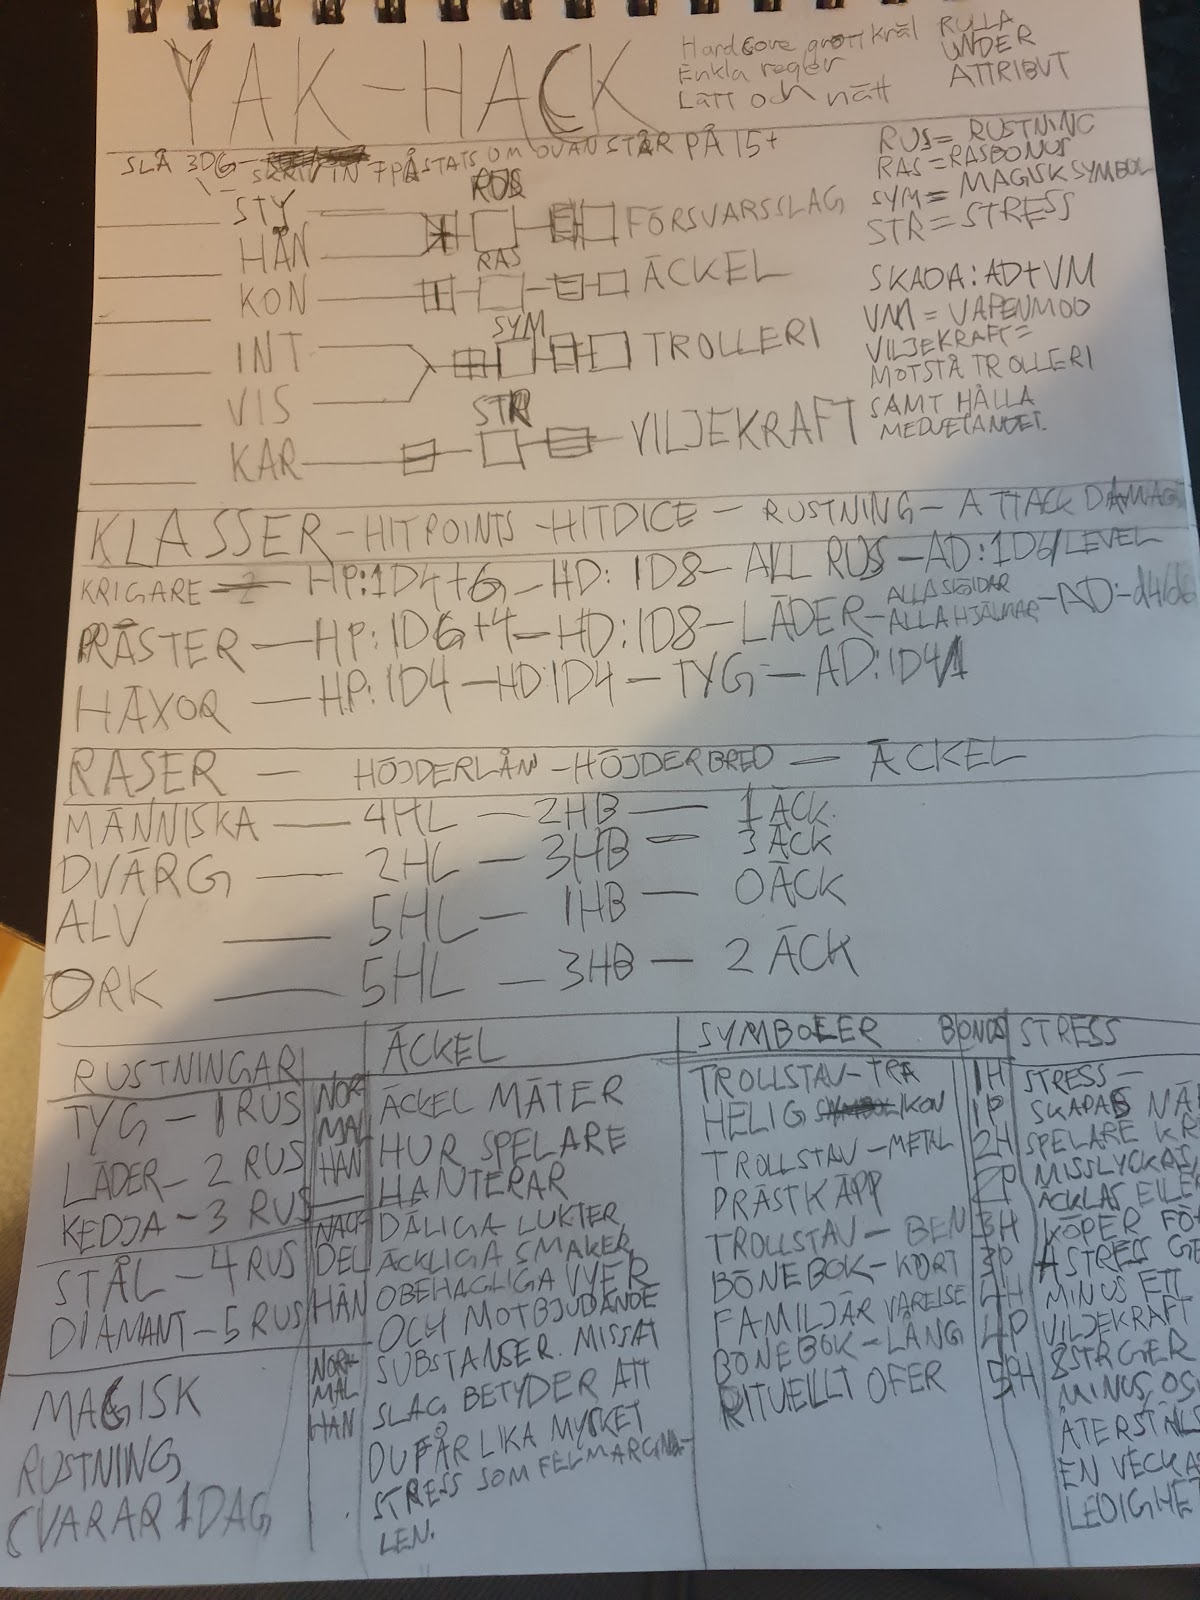 YAK-HACK
Hardcore grottkräl
Enkla regler
Lätt och nätt
RULLA
UNDER
ATTRIBUT
SLÅ 3D6- IN 7 PÅ STATS OM OVAN STÅR PÅ 15+
RUS= RUSTNING
RAS=RASBONUS
SYM= MAGISK SYMBOL
STR=STRESS
STY
HÄN
RUS
FÖRSVARSSLAG
KON
RAS
ÄCKEL
INT
VIS
SYM
TROLLERI
KAR
STR
VILJEKRAFT
SKADA: AD+VM
VM = VAPENMOD
VILJEKRAFT=
MOTSTÅ TROLLERI
SAMT HÅLLA
MEDVETANDET.
KLASSER-HITPOINTS-HITDICE-RUSTNING-ATTACK DAMAGE
KRIGARE - HP:1D4+6-HD: 1D8-ALL RUS-AD:1D6/LEVEL
PRÄSTER-HP:1D6+4-HD:1D8-LÄDER-ALLA SKÖLDAR
ALLA HJÄLMAR-AD:-d4/d6
HÄXOR-HP:1D4-HD:1D4-TYG-AD:1D4/1
RASER-HÖJDERLÅN-HÖJDERBRED-ÄCKEL
MÄNNISKA-4HL-2HB-1 ÄCK.
DVÄRG-2HL-3HB-3 ÄCK
ALV-5HL-1HB-0 ÄCK
ORK-5HL-3HB-2 ÄCK
RUSTNINGAR
TYG-1 RUS
LÄDER-2 RUS
KEDJA-3 RUS
NOR-
MAL
HÄN
STÅL-4 RUS
DIAMANT-5 RUS
NACK-
DEL
HÄN
MAGISK
RUSTNING
SVARAR 1 DAG
NOR-
MAL
HÄN
ÄCKEL
ÄCKEL MÄTER
HUR SPELARE
HANTERAR
DÅLIGA LUKTER
ÄCKLIGA SMAKER
OBEHAGLIGA VYER
OCH MOTBJUDANDE
SUBSTANSER. MISSAT
SLAG BETYDER ATT
DU FÅR LIKA MYCKET
STRESS SOM FELMARGINA-
LEN.
SYMBOLER BONUS
TROLLSTAV-TRÄ 1H
HELIG IKON 1P
TROLLSTAV-METAL 2H
PRÄSTKÄPP 2P
TROLLSTAV-BEN 3H
BÖNEBOK-KORT 3P
FAMILJÄR VARELSE 4H
BÖNEBOK-LÅNG 4P
RITUELLT OFER 5PH
STRESS
STRESS-
SKAPAS NÄ
SPELARE KR
MISSLYCKAS,
ÄCKLAS ELLER
KÖPER FÖ
4 STRESS GE
MINUS ETT
VILJEKRAFT
8 STR GER
MINUS, OS
ÅTERSTÄLS
EN VECKAS
LEDIGHET